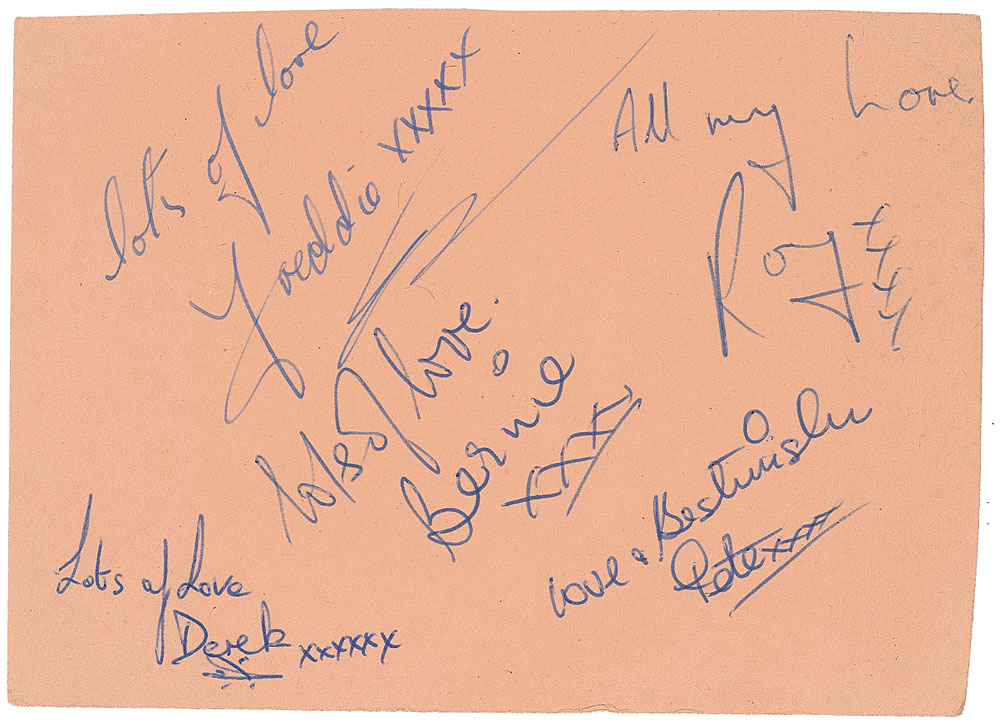 lots of love
Freddie xxxxx
All my Love
Roy xxxx
lots of love.
Bernie
xxx
Love & Best wishes
Pete xxxx
Lots of Love
Derek xxxxxx